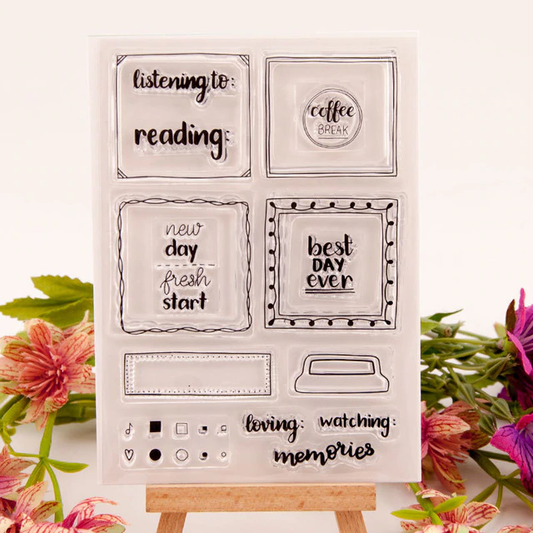 listening to:
reading:
coffee
BREAK
new
day
fresh
start
best
DAY
ever
loving:
watching:
memories